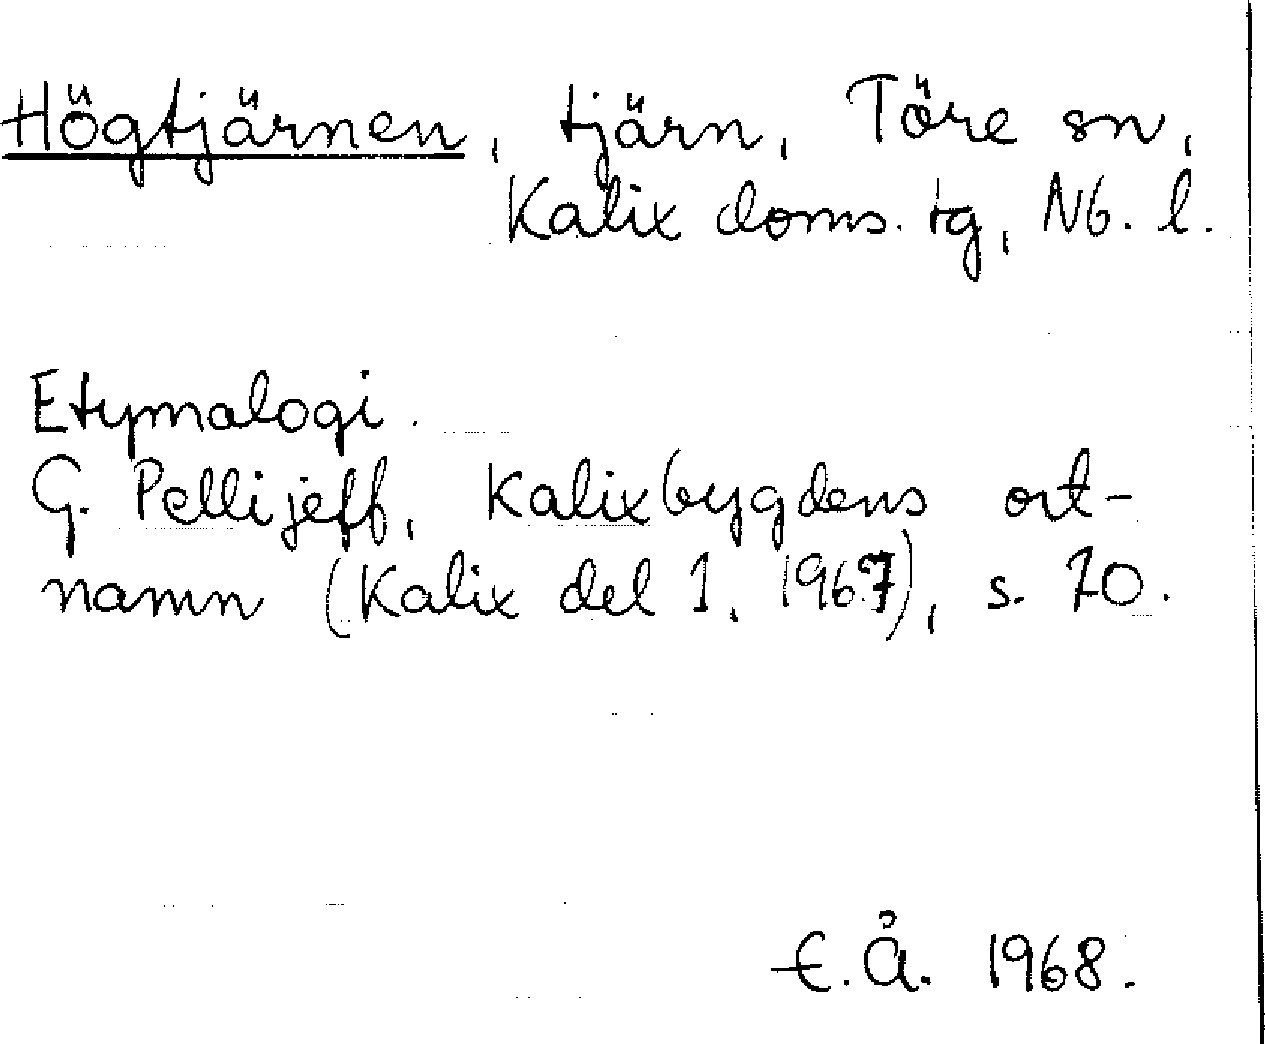 Högtjärnen, tjärn, Töre sn,
Kalix doms. tg, Nb. l.
Etymologi.
G. Pellijeff, Kalixbygdens ort-
namn (Kalix del 1, 1967), s. 70.
E.Å. 1968.